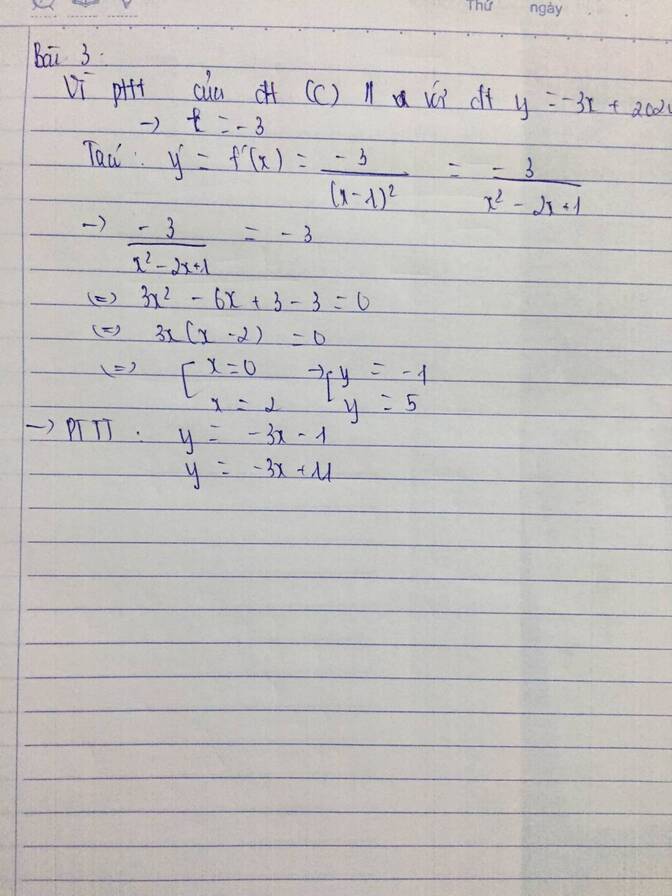 Thứ ngày
Bài 3.
Vì pttt của đt (C) // với đt y = -3x + 202
→ k = -3
Ta có: y' = f'(x) = -3/(x-1)² = -3/(x² - 2x + 1)
→ -3/(x² - 2x + 1) = -3
(=) 3x² - 6x + 3 - 3 = 0
(=) 3x(x - 2) = 0
(=) [ x = 0 → [ y = -1
x = 2 y = 5
→ PTTT : y = -3x - 1
y = -3x + 11